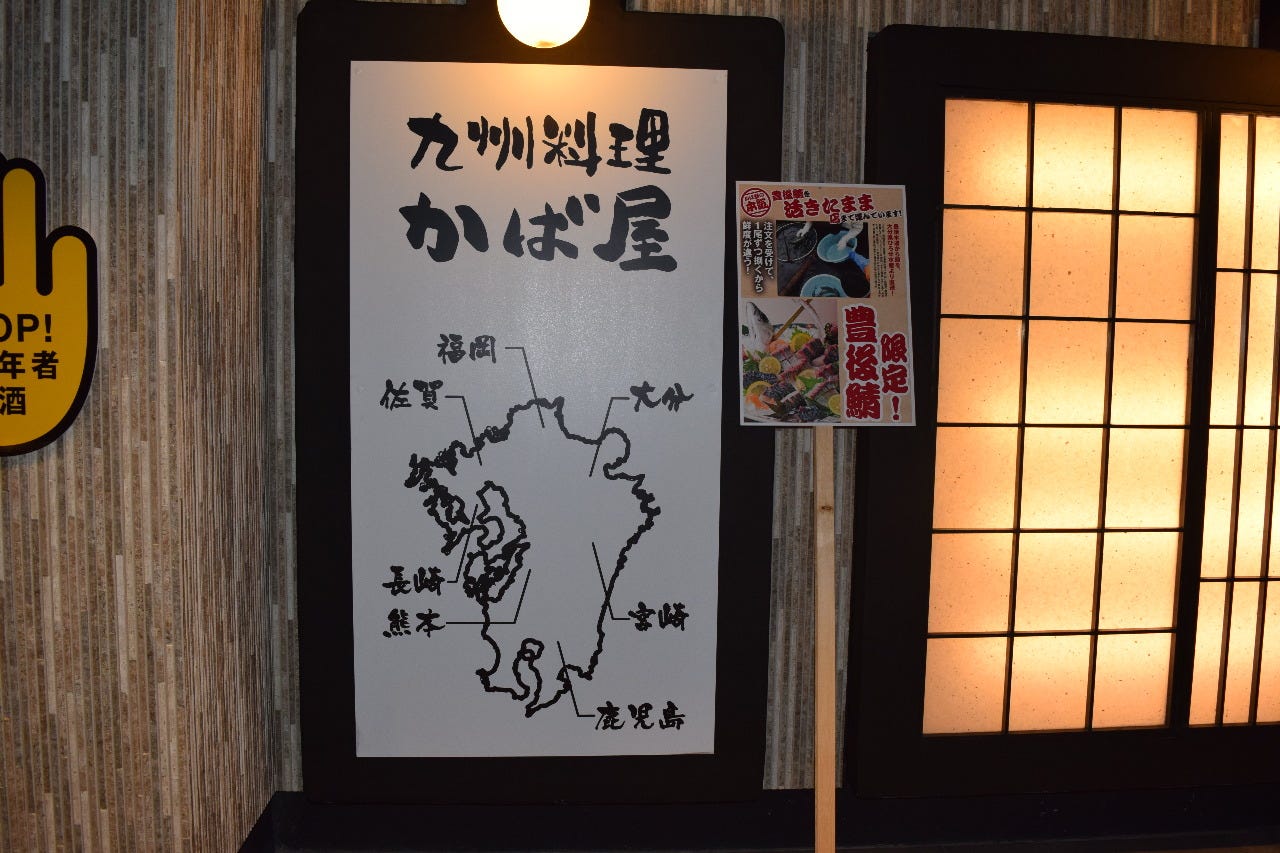 九州料理
かば屋
福岡
佐賀
大分
長崎
熊本
宮崎
鹿児島
OP!
年者
酒
豊後鯖を
活きたまま
店まで運んでいます!
注文を受けて、
1尾ずつ捌くから
鮮度が違う!
限定!
豊後鯖